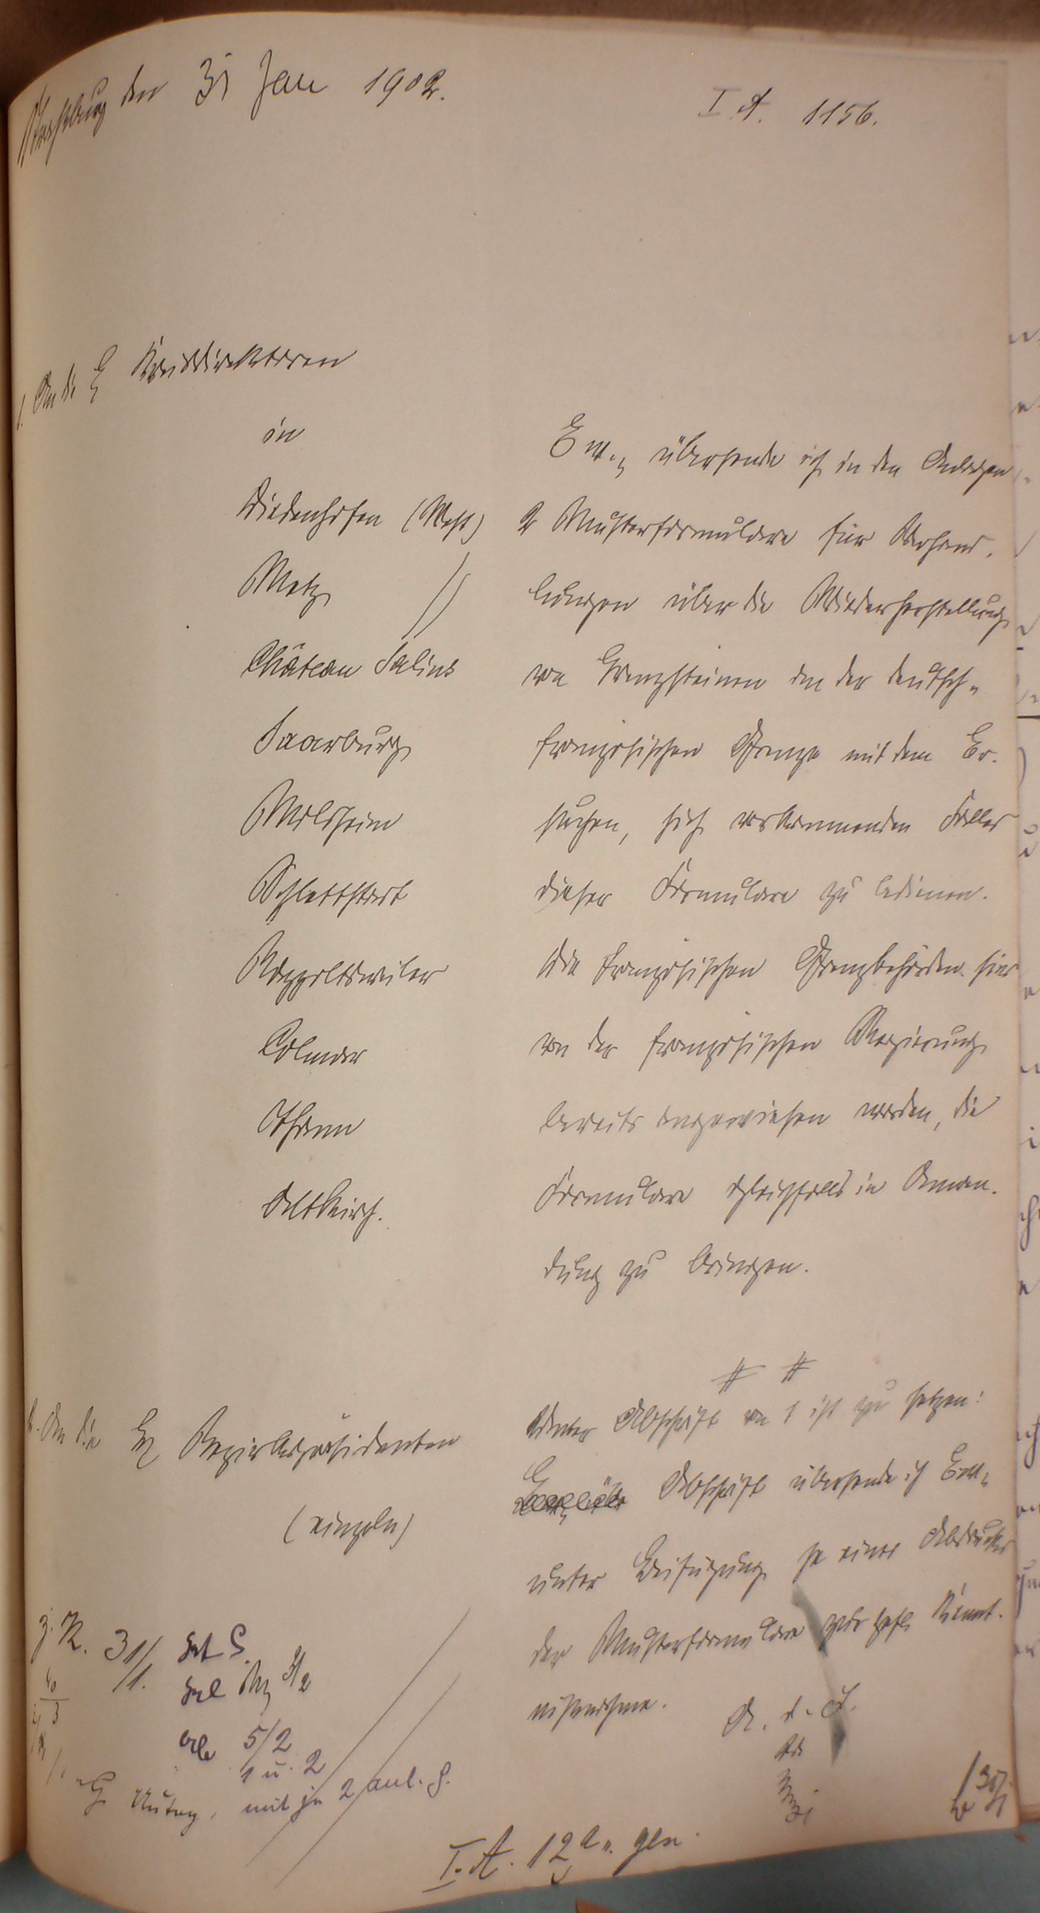 Straßburg den 31 Jan 1902.
I. A. 1156.
1. An die H Kreisdirektoren
in
Diedenhofen (West)
Metz
Château Salins
Saarburg
Molsheim
Schlettstadt
Rappoltsweiler
Colmar
Thann
Altkirch.
Ew., übersende ich in den Anlagen
2 Musterformulare für Verhand-
lungen über die Wiederherstellung
von Grenzsteinen an der deutsch-
französischen Grenze mit dem Er-
suchen, sich vorkommenden Falles
dieser Formulare zu bedienen.
Die französischen Grenzbehörden sind
von der französischen Regierung
bereits angewiesen worden, die
Formulare gleichfalls in Anwen-
dung zu bringen.
# #
2. An die H Bezirkspräsidenten
(einzeln)
Unter Abschrift von 1 ist zu setzen:
Abschrift übersende ich Ew.,
unter Beifügung je eines Abdruckes
der Musterformulare zur gefl. Kennt-
nißnahme.
z. K. 31/1.
5/2
1 u. 2
mit je 2 anl. S.
I. A. 12 gen.